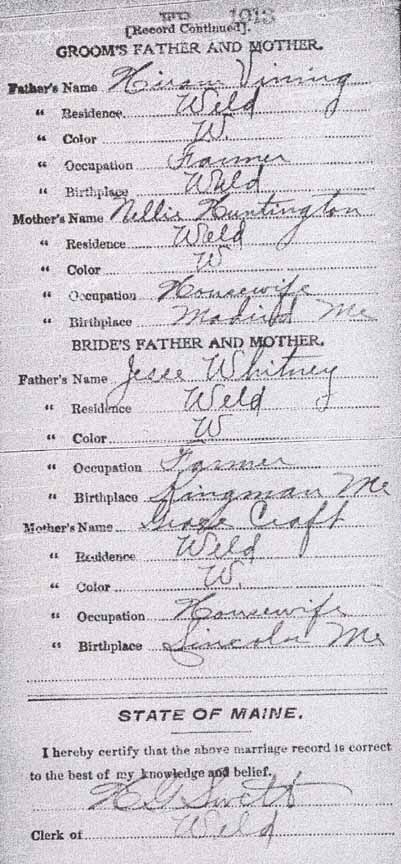 1913
[Record Continued].
GROOM'S FATHER AND MOTHER.
Father's Name Hiram Vining
" Residence Weld
" Color W.
" Occupation Farmer
" Birthplace Weld
Mother's Name Nellie Huntington
" Residence Weld
" Color W
" Occupation Housewife
" Birthplace Madrid Me
BRIDE'S FATHER AND MOTHER.
Father's Name Jesse Whitney
" Residence Weld
" Color W
" Occupation Farmer
" Birthplace Kingman Me
Mother's Name Grace Craft
" Residence Weld
" Color W.
" Occupation Housewife
" Birthplace Lincoln Me
STATE OF MAINE.
I hereby certify that the above marriage record is correct
to the best of my knowledge and belief.
H G Swett
Clerk of Weld